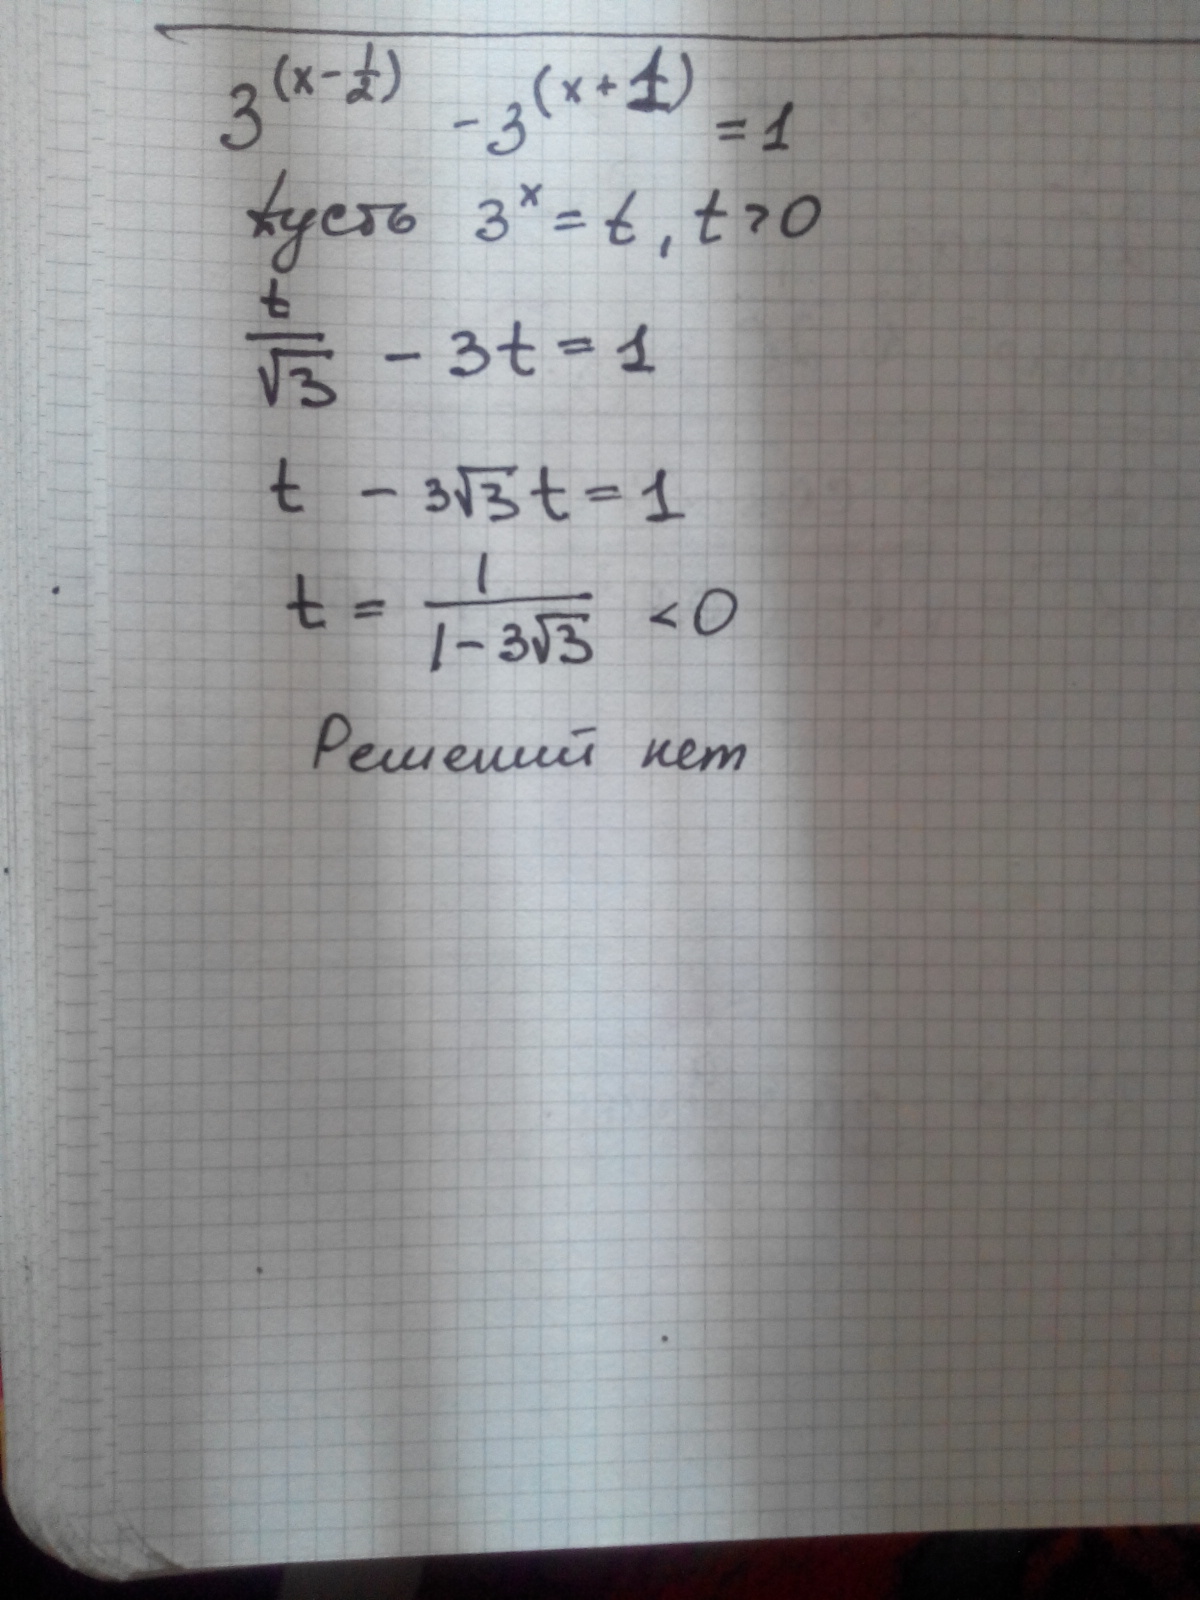 3^(x-1/2) -3^(x+1) =1
пусть 3^x = t, t>0
t/√3 - 3t = 1
t - 3√3 t = 1
t = 1/(1-3√3) <0
Решений нет